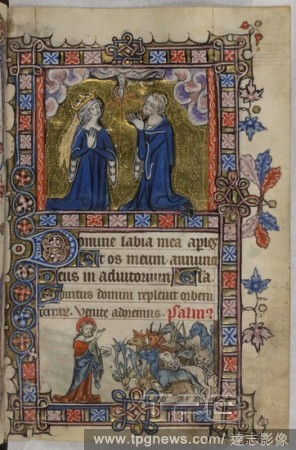 Domine labia mea ap̄ies
Et os meum annunc
Deus in adiutorium
Spiritus domini repleuit orbem
terrar. Venite adoremus. psalm
www.tpgnews.com / 達志影像